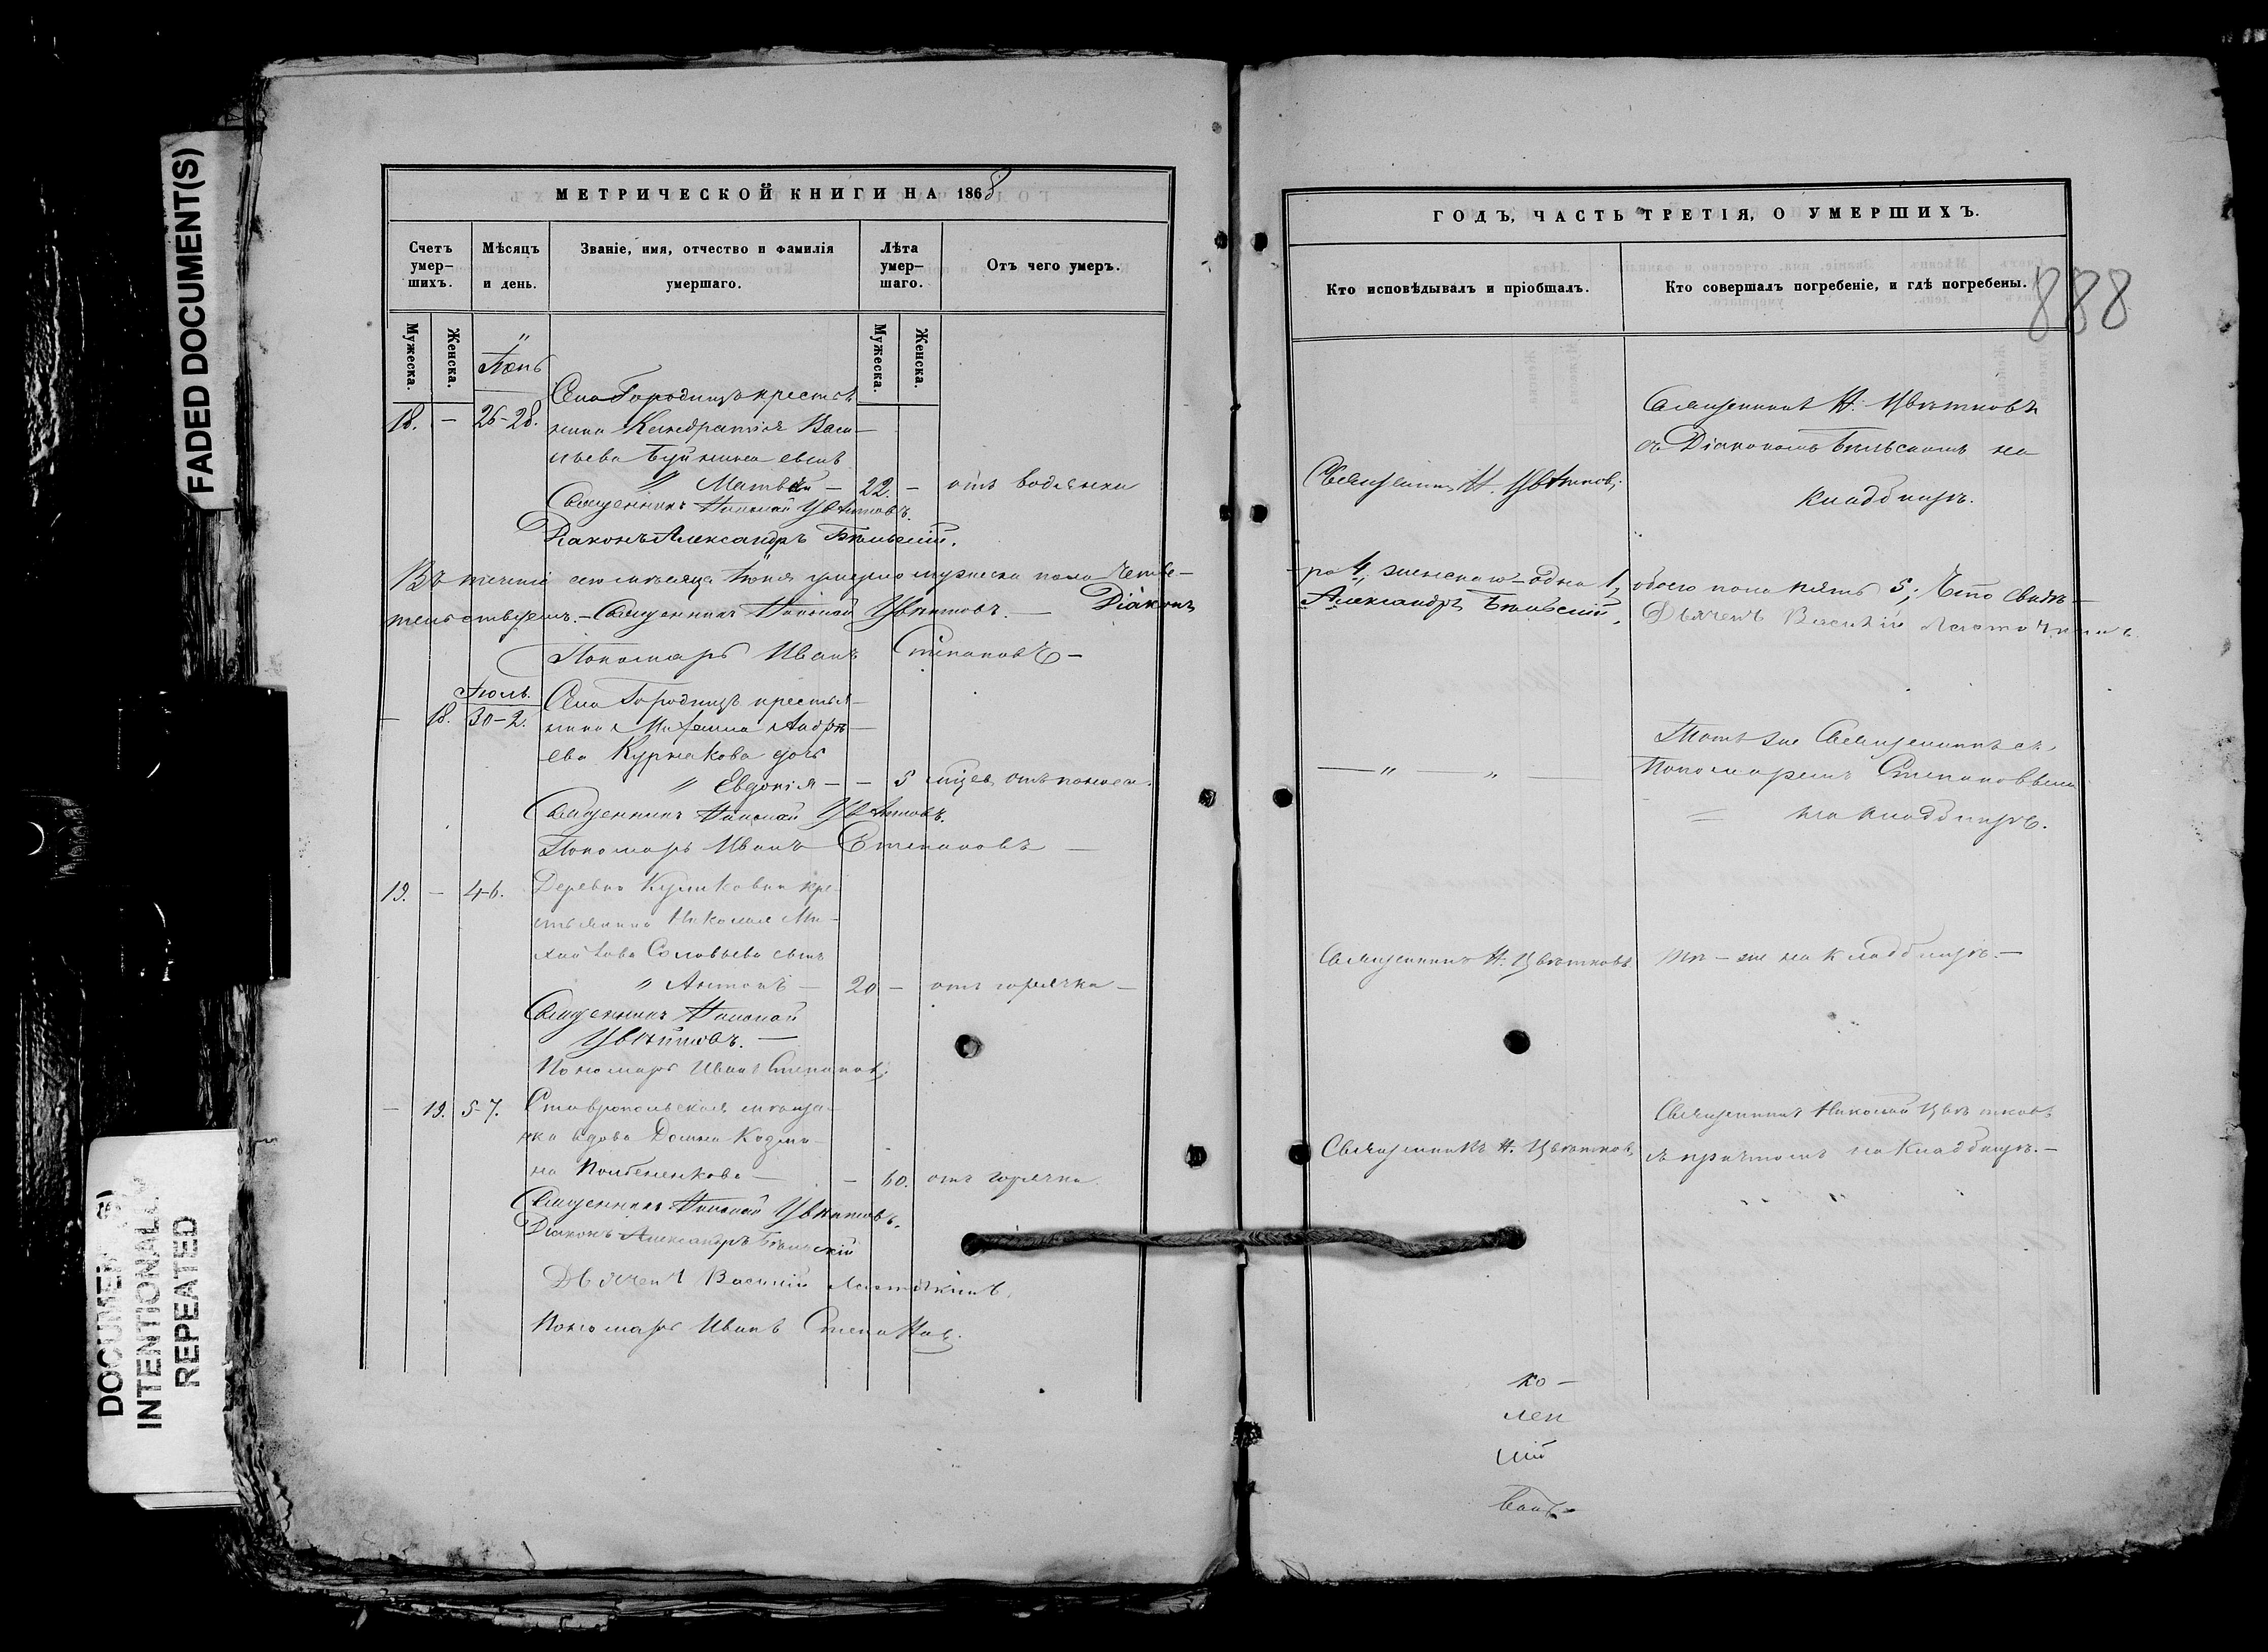 FADED DOCUMENT(S)
DOCUMENT(S)
INTENTIONALLY
REPEATED
МЕТРИЧЕСКОЙ КНИГИ НА 1868
Счетъ умер–шихъ.
Мѣсяцъ и день.
Званіе, имя, отчество и фамилія умершаго.
Лѣта умер–шаго.
Отъ чего умеръ.
Мужеска.
Женска.
Мужеска.
Женска.
Іюнь
18. – 26-28. Села Городищъ крестья
нина Кондратія Васи–
льева сынъ
" Матвей – 22. – отъ водянки
Священникъ Николай Цвѣтковъ.
Діаконъ Александръ Бѣльскій.
Въ теченіе сего мѣсяца Іюня умерло мужеска пола четве–
тельствуемъ.– Священникъ Николай Цвѣтковъ. – Діаконъ
Пономарь Иванъ Степановъ –
Іюль.
– 18. 30-2. Села Городищъ крестья–
нина Михаила Андрѣ–
ева Курмакова дочь
" Евдокія – – 5 мѣсяц. отъ поноса.
Священникъ Николай Цвѣтковъ.
Пономарь Иванъ Степановъ –
19. – 4-6. Деревни Куликовки кре–
стьянина Николая Ми–
хайлова Соловьева сынъ
" Антонъ – 20 – отъ горячки –
Священникъ Николай
Цвѣтковъ. –
Пономарь Иванъ Степановъ
– 19. 5-7. Ставропольская мѣщан–
ка вдова Домна Козми–
на – – 60. отъ горячки.
Священникъ Николай Цвѣтковъ.
Діаконъ Александръ Бѣльскій
Дьячекъ Василій Ласточкинъ.
Пономарь Иванъ Степановъ.
ГОДЪ, ЧАСТЬ ТРЕТІЯ, О УМЕРШИХЪ.
Кто исповѣдывалъ и пріобщалъ.
Кто совершалъ погребеніе, и гдѣ погребены.
888
Священникъ Н. Цвѣтковъ
съ Діакономъ Бѣльскимъ на
кладбищѣ.
Священникъ Н. Цвѣтковъ.
–ро 4, женска – одна 1, обоего пола пять 5; Что свидѣ–
Александръ Бѣльскій. Дьячекъ Василій Ласточкинъ.
Тотъ же Священникъ съ
Пономаремъ Степановымъ
на кладбищѣ.
Священникъ Н. Цвѣтковъ Тѣ – же на кладбищѣ. –
Священникъ Николай Цвѣтковъ
Священникъ Н. Цвѣтковъ съ причтомъ на кладбищѣ. –
ко –
лен